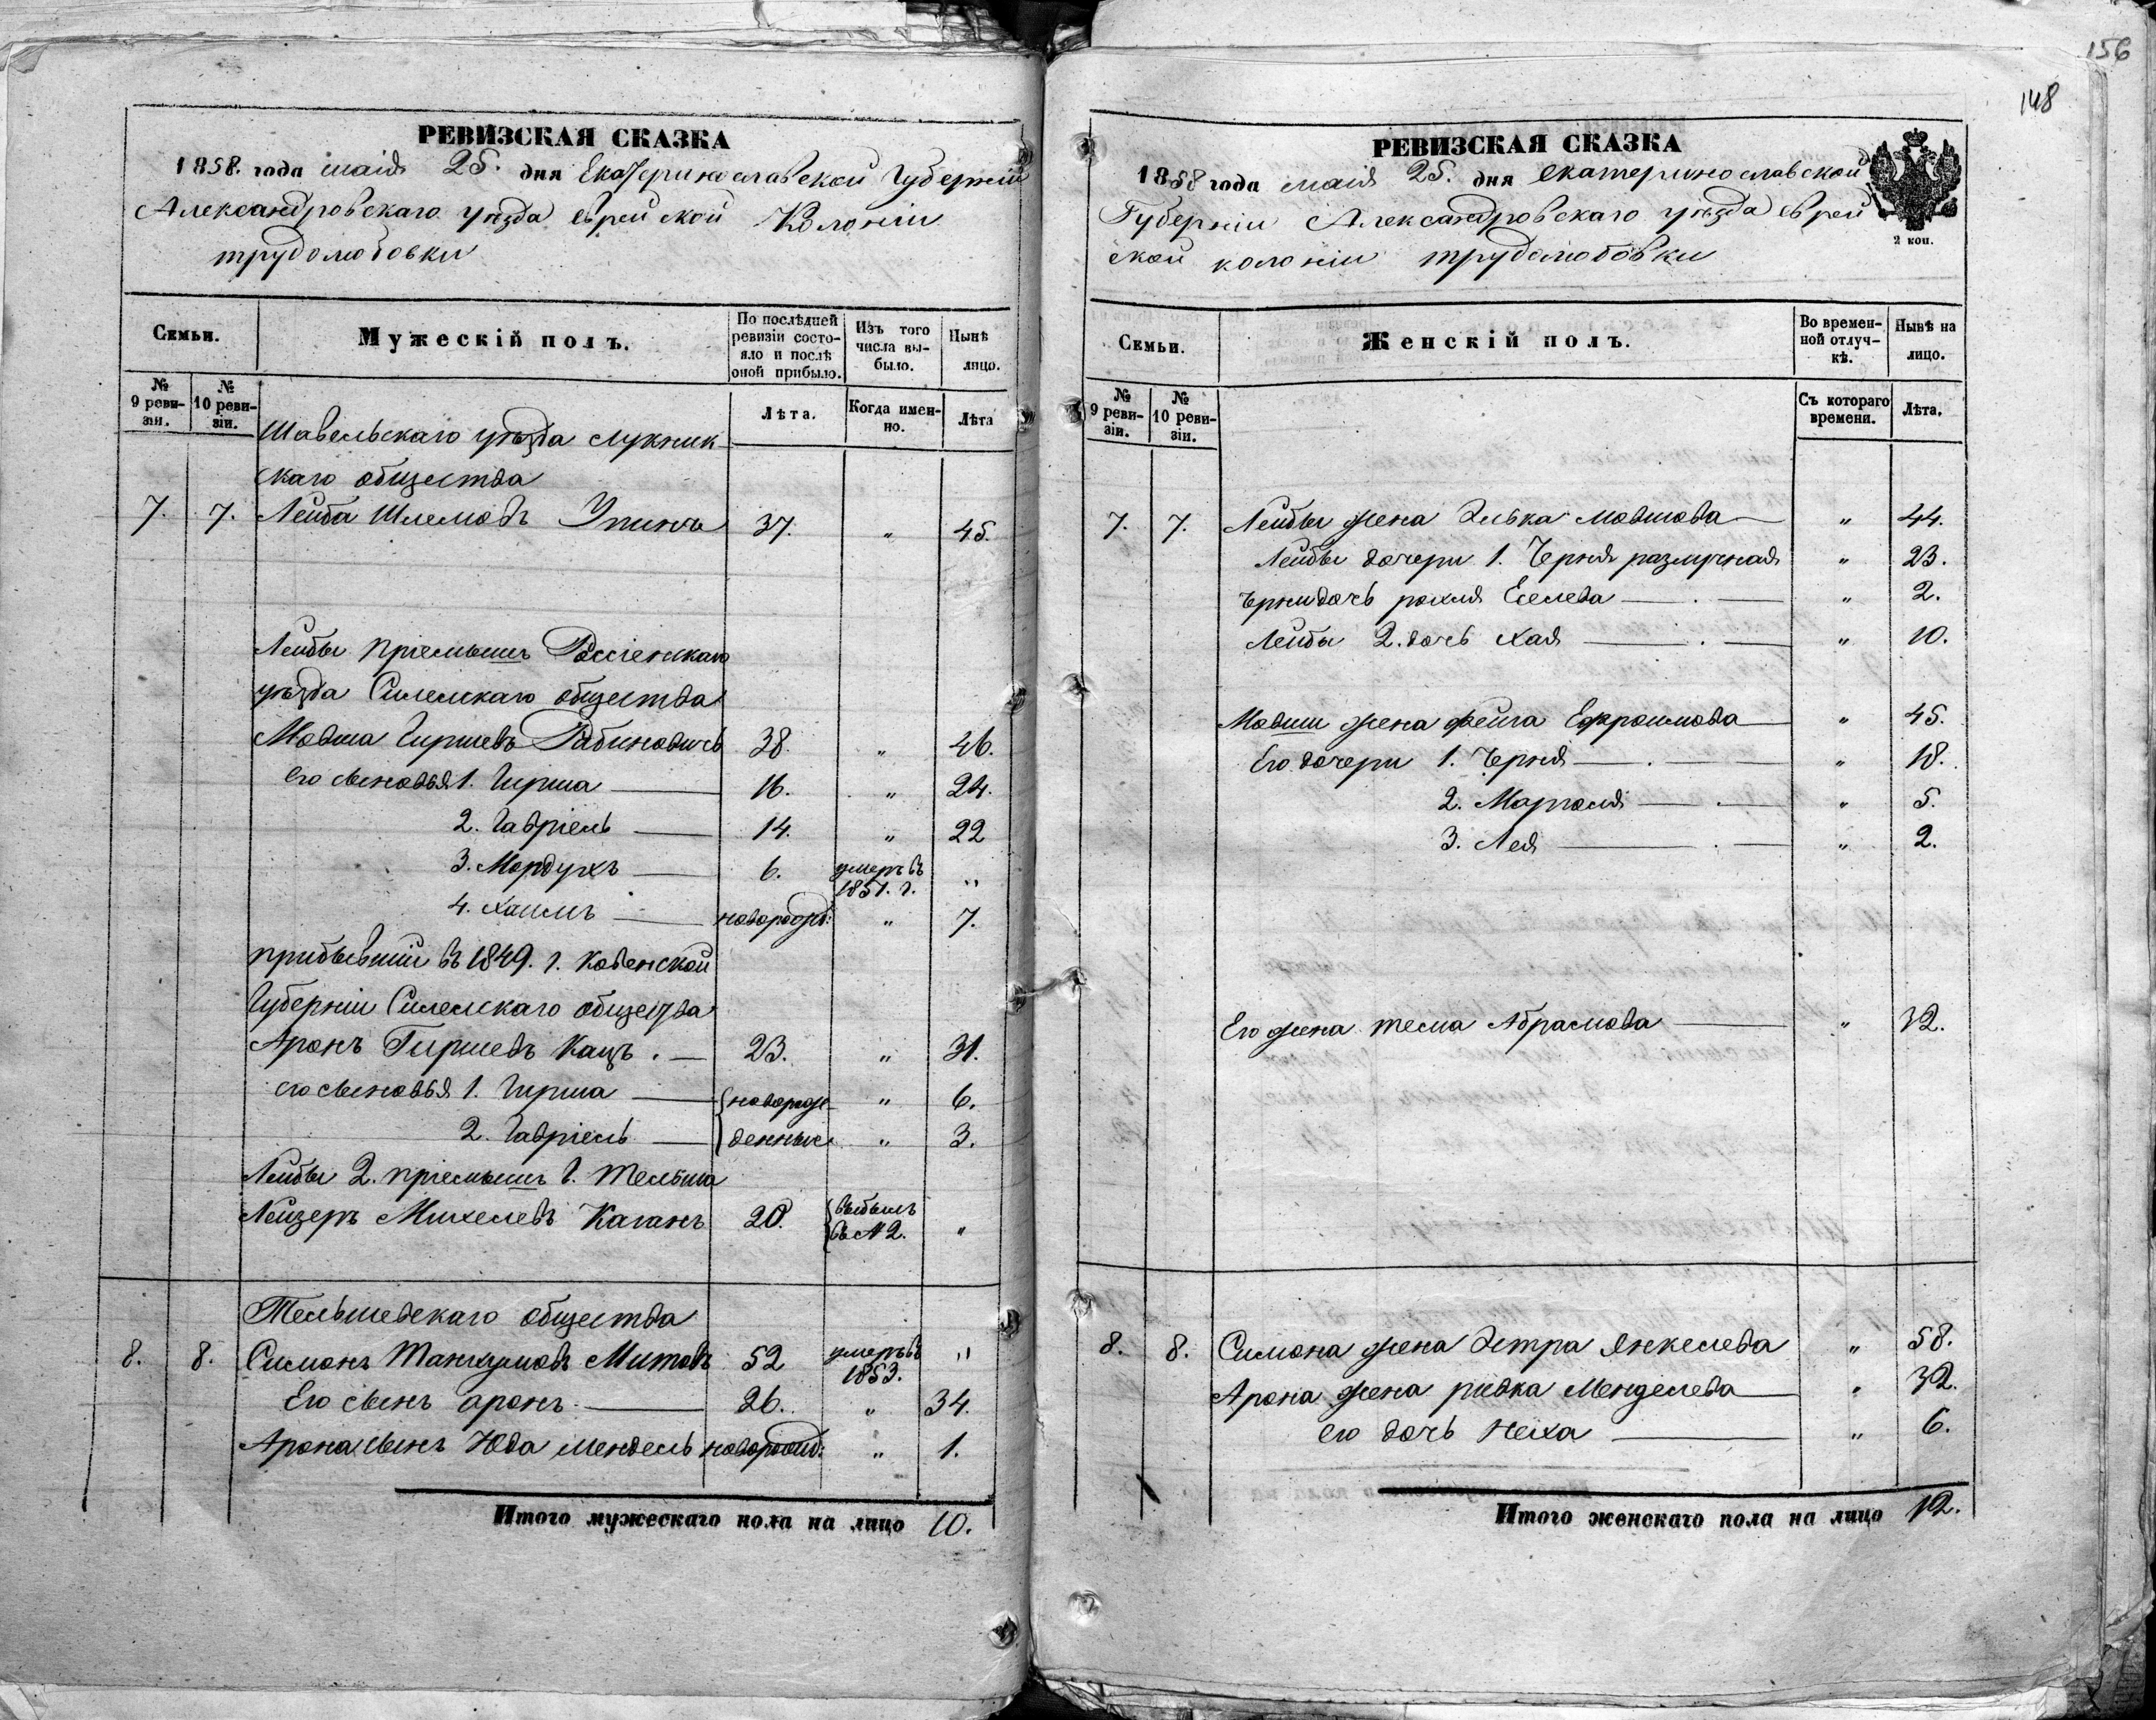 РЕВИЗСКАЯ СКАЗКА
1858. года маія 25. дня Екатеринославской Губерніи
Александровскаго уѣзда еврейской Колоніи
трудолюбовки
Семьи.
Мужескій полъ.
По послѣдней ревизіи состояло и послѣ оной прибыло.
Изъ того числа выбыло.
Нынѣ лицо.
№ 9 ревизіи.
№ 10 ревизіи.
Лѣта.
Когда именно.
Лѣта
Шавельскаго уѣзда Лукник
скаго общества
7. 7. Лейба Шлемовъ Упинъ 37. " 45.
Лейбы пріемышъ Россіенскаго
уѣзда Силелскаго общества
Мовша Гиршевъ Рабиновичъ 38. " 46.
его сыновья 1. Гирша 16. " 24.
2. Гавріель 14. " 22
3. Мордухъ 6. умеръ въ 1851. г. "
4. Хаимъ новорожд: " 7.
прибывшій въ 1849. г. Ковенской
Губерніи Силелскаго общества
Аронъ Гиршевъ Кацъ. 23. " 31.
его сыновья 1. Гирша новорож- " 6.
2. Гавріель денные " 3.
Лейбы 2. пріемышъ г. Тельша
Лейзеръ Михелевъ Каганъ 20. выбылъ въ № 2. "
Тельшевскаго общества
8. 8. Симонъ Танхумовъ Митовъ 52 умеръ въ 1853. "
Его сынъ аронъ 26. " 34.
Арона сынъ Юда Мендель новорожд: " 1.
Итого мужескаго пола на лицо 10.
156
148
РЕВИЗСКАЯ СКАЗКА
1858 года маія 25. дня екатеринославской
Губерніи Александровскаго уѣзда еврей
ской колоніи трудолюбовки
2 коп.
Семьи.
Женскій полъ.
Во временной отлучкѣ.
Нынѣ на лицо.
№ 9 ревизіи.
№ 10 ревизіи.
Съ котораго времени.
Лѣта.
7. 7. Лейбы жена Элька Мовшова " 44.
Лейбы дочери 1. Черня разлучная " 23.
Черни дочь рохля Еселева " 2.
Лейбы 2. дочь Хая " 10.
Мовши жена фейга Ефроимова " 45.
Его дочери 1. Черня " 18.
2. Марголя " 5.
3. Лея " 2.
Его жена тема Абрамова " 32.
8. 8. Симона жена Эстра Янкелева " 58.
Арона жена ривка Менделева " 32.
его дочь Неха " 6.
Итого женскаго пола на лицо 12.